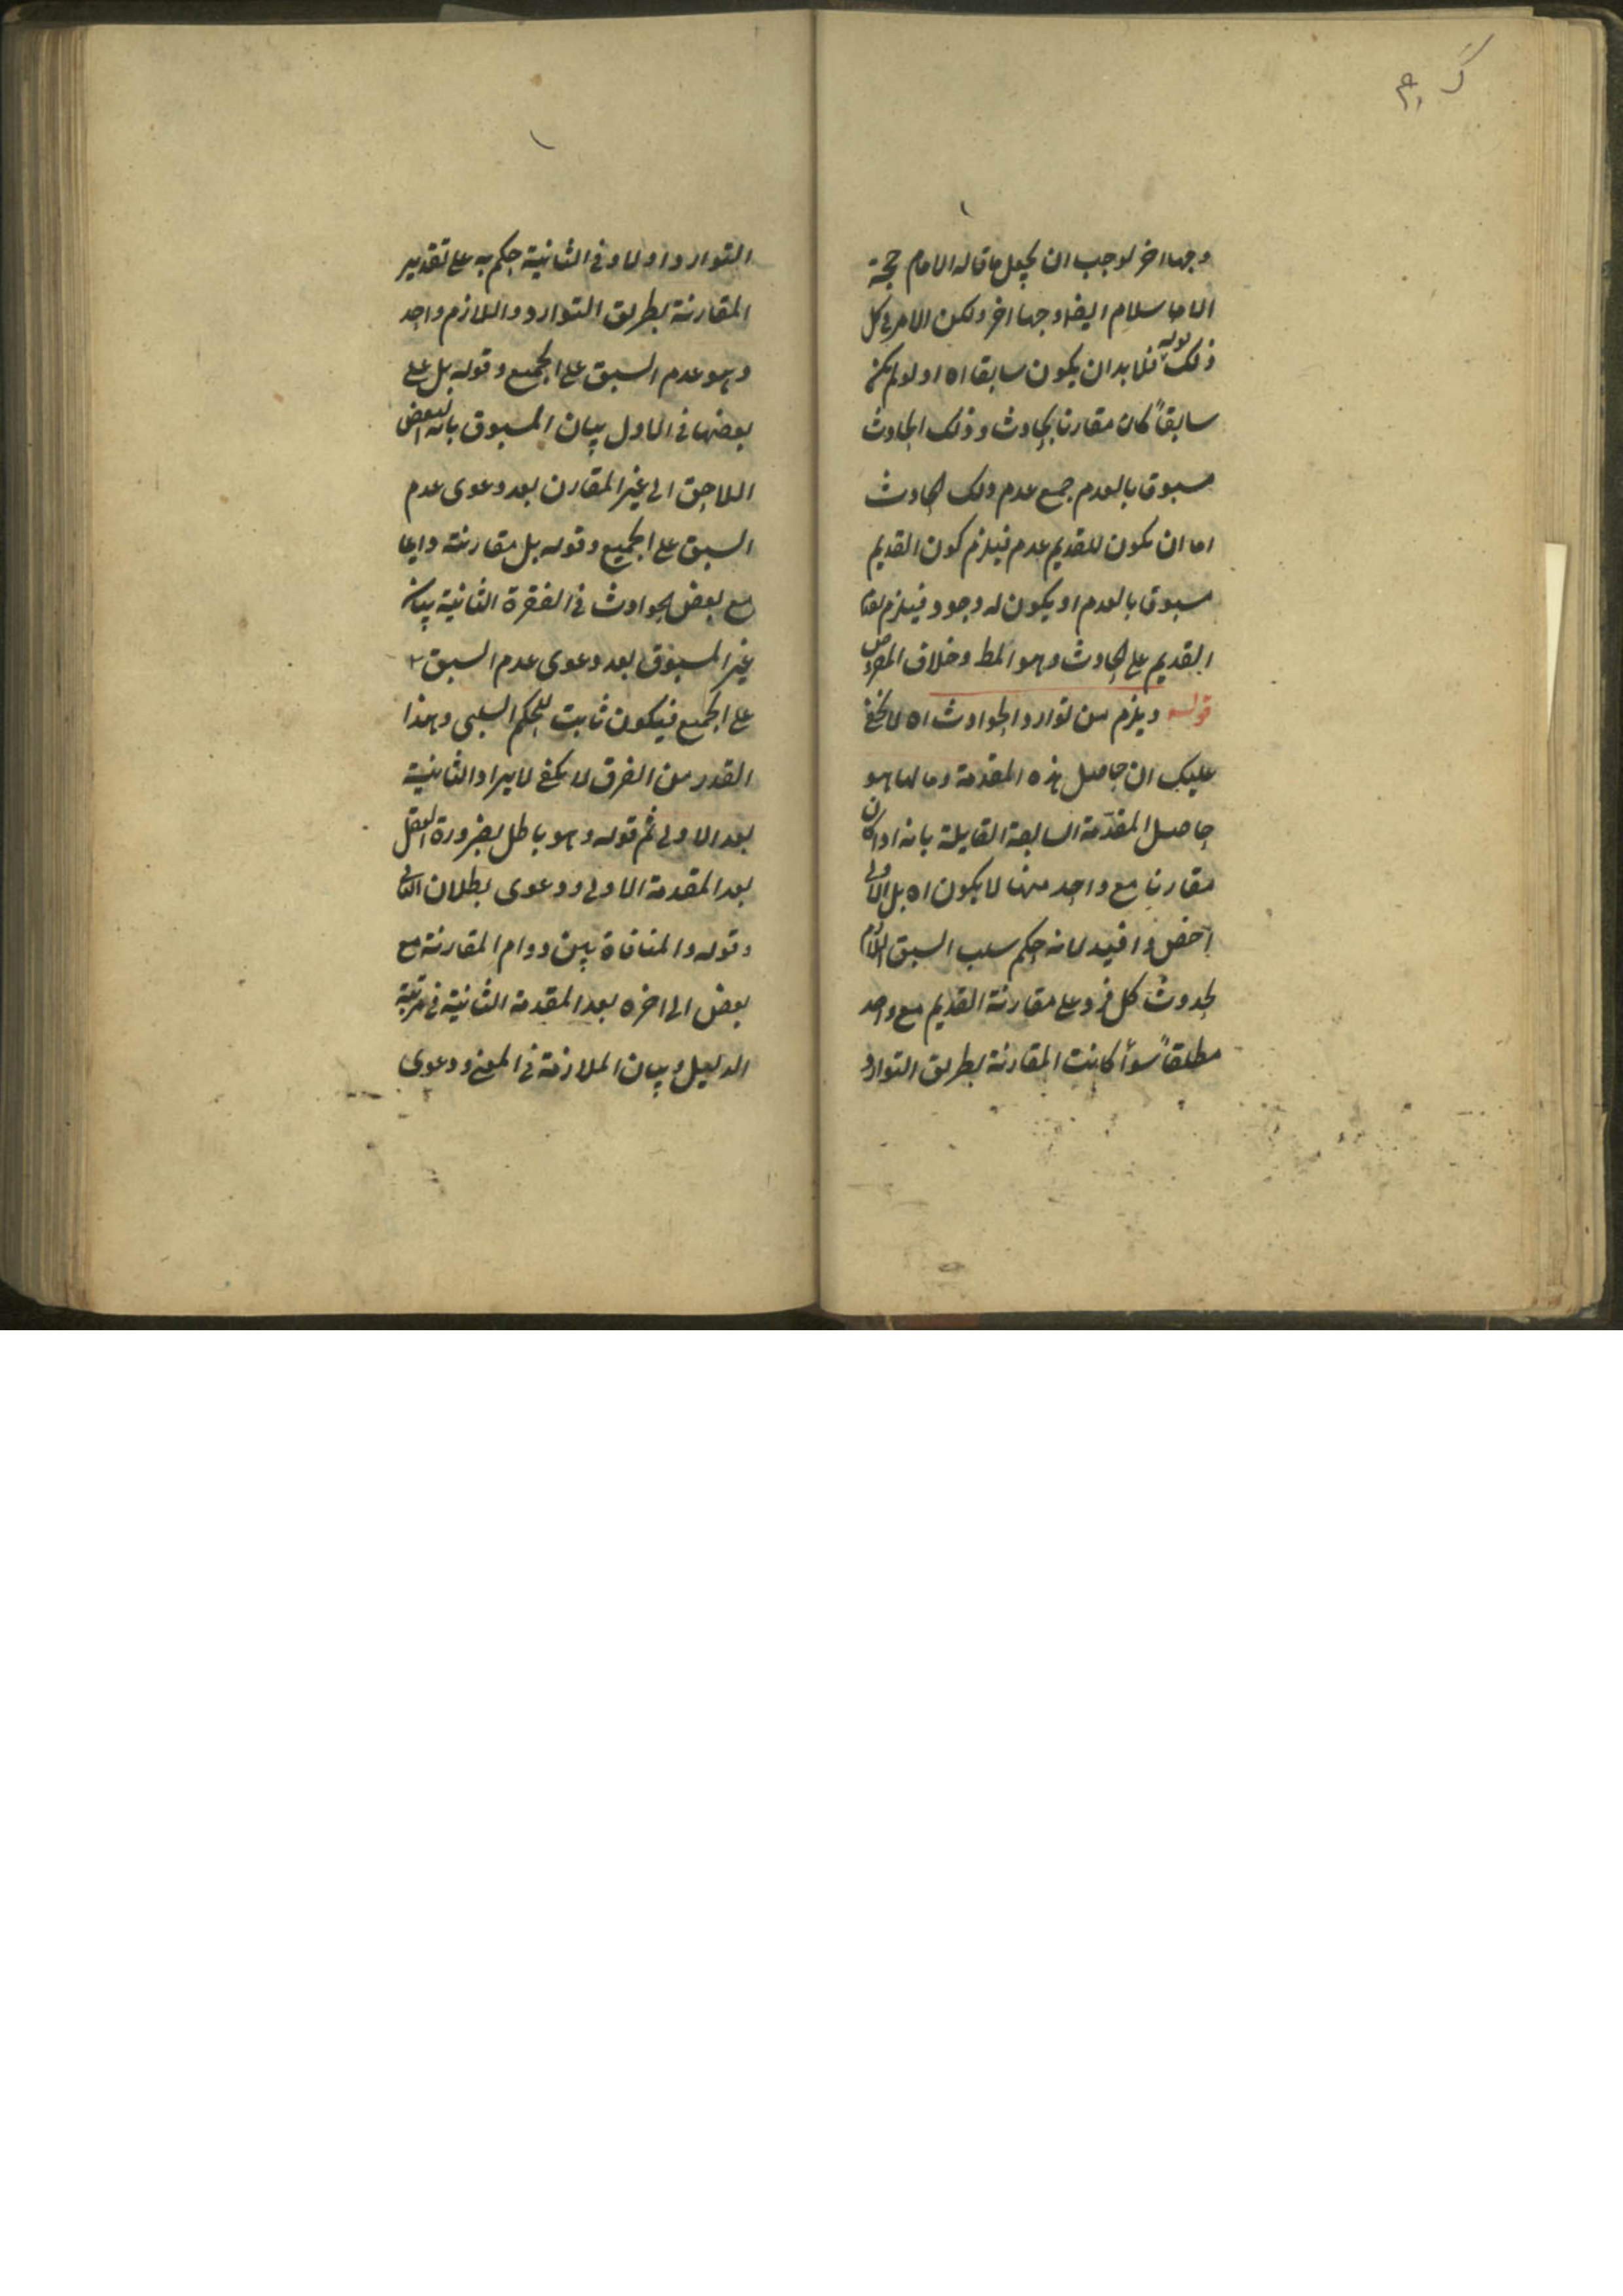 وجها اخر لوجب ان يجعل ما قاله الامام حجة
الاسلام ايضا وجها اخر ولكن الامر في كل
ذلك قوله فلا بد ان يكون سابقا اه اذ لو لم يكن
سابقاً كان مقارنا بحادث وذلك الحادث
مسبوق بالعدم جمع عدم ذلك الحادث
اما ان يكون للقديم عدم فيلزم كون القديم
مسبوق بالعدم او يكون له وجود فيلزم
القديم على الحادث وهو المط وخلاف المفروض
قوله ويلزم من توارد الحوادث اه لا يخفى
عليك ان حاصل هذه المقدمة ومالها هو
حاصل المقدمة السابعة القايلة بانه اذا كان
مقارنا مع واحد منها لا يكون اه بل الاولى
اخصل وافيد لانه حكم سلب السبق اللازم
لحدوث كل فرد على مقارنة القديم مع واحد
مطلقاً سوأ كانت المقارنة بطريق التوارد
التوارد اولا وفي الثانية حكم به على تقدير
المقارنة بطريق التوارد واللازم واحد
وهو عدم السبق على الجميع وقوله بل على
بعضها في الاول بيان المسبوق بانه البعض
اللاحق الى غير المقارن بعد دعوى عدم
السبق على الجميع وقوله بل مقارنته دايما
مع بعض الحوادث في الفقرة الثانية بيان
غير المسبوق بعد دعوى عدم السبق
على الجميع فيكون ثابت للحكم السلبي وهذا
القدر من الفرق لا يكفي لايراد الثانية
بعد الاولى ثم قوله وهو باطل بضرورة العقل
بعد المقدمة الاولى ودعوى بطلان التالي
وقوله والمنافاة بين دوام المقارنة مع
بعض الى اخره بعد المقدمة الثانية في مرتبة
الدليل وبيان الملازمة في المعنى ودعوى